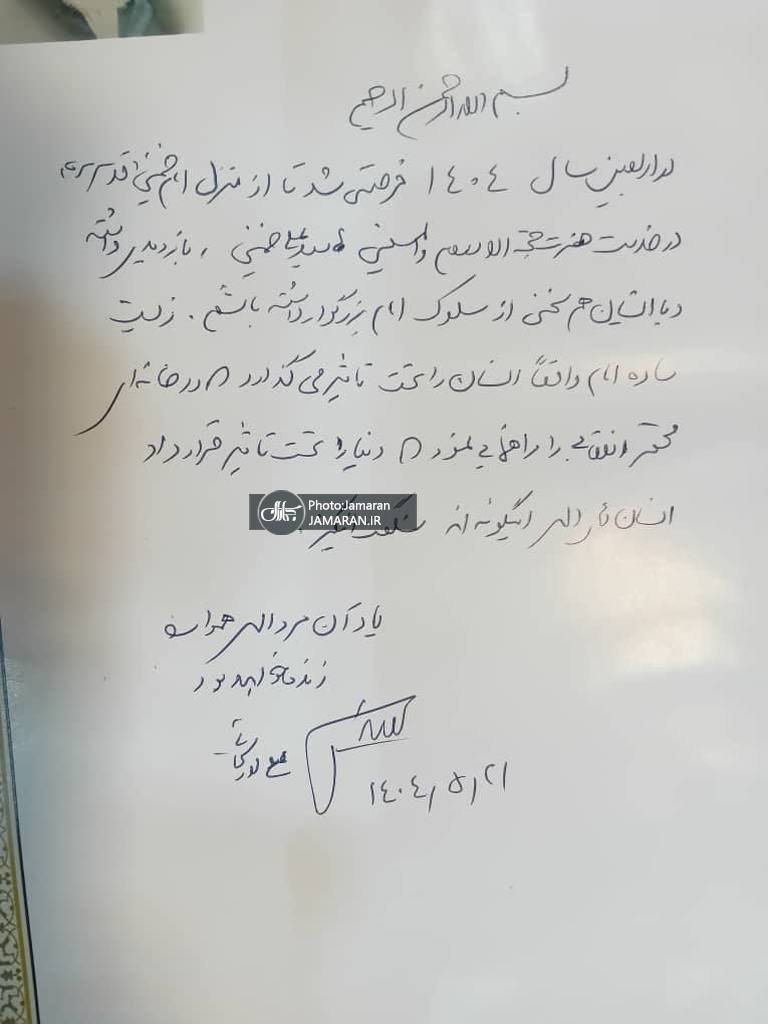 بسم الله الرحمن الرحیم
در اربعین سال ۱۴۰۴ فرصتی شد تا از منزل امام خمینی قدس سره
در خدمت حضرت حجة الاسلام والمسلمین سید علی خمینی، بازدیدی داشته
و با ایشان هم سخنی از سلوک امام بزرگوار داشته باشم. زیست
ساده امام واقعاً انسان را تحت تاثیر می گذارد که در خانه ای
محقر انقلابی را راهنمایی نمود که دنیا را تحت تاثیر قرار داد
انسان های الهی اینگونه اند شگفت انگیز.
یاد آن مرد الهی همواره
زنده خواهد بود
۱۴۰۴/۵/۲۱
Photo:Jamaran
JAMARAN.IR